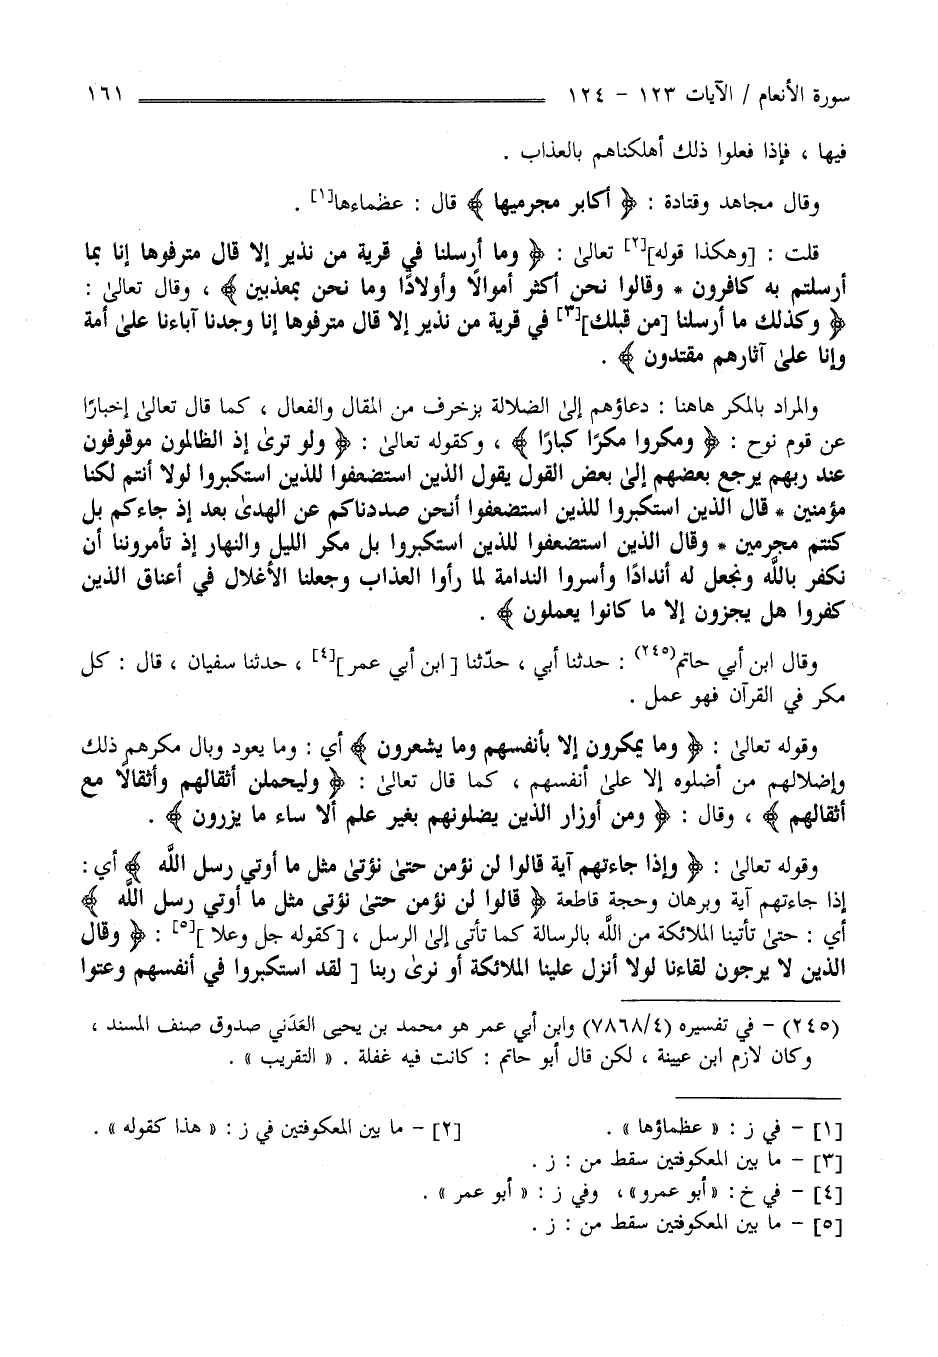 سورة الأنعام / الآيات ١٢٣ - ١٢٤ ١٦١
فيها ، فإذا فعلوا ذلك أهلكناهم بالعذاب .
وقال مجاهد وقتادة : ﴿ أكابر مجرميها ﴾ قال : عظماءها[١] .
قلت : [وهكذا قوله][٢] تعالىٰ : ﴿ وما أرسلنا في قرية من نذير إلا قال مترفوها إنا بما
أرسلتم به كافرون * وقالوا نحن أكثر أموالًا وأولادًا وما نحن بمعذبين ﴾ ، وقال تعالىٰ :
﴿ وكذلك ما أرسلنا [من قبلك][٣] في قرية من نذير إلا قال مترفوها إنا وجدنا آباءنا علىٰ أمة
وإنا علىٰ آثارهم مقتدون ﴾ .
والمراد بالمكر هاهنا : دعاؤهم إلىٰ الضلالة بزخرف من المقال والفعال ، كما قال تعالىٰ إخبارًا
عن قوم نوح : ﴿ ومكروا مكرًا كبارًا ﴾ ، وكقوله تعالىٰ : ﴿ ولو ترىٰ إذ الظالمون موقوفون
عند ربهم يرجع بعضهم إلىٰ بعض القول يقول الذين استضعفوا للذين استكبروا لولا أنتم لكنا
مؤمنين * قال الذين استكبروا للذين استضعفوا أنحن صددناكم عن الهدىٰ بعد إذ جاءكم بل
كنتم مجرمين * وقال الذين استضعفوا للذين استكبروا بل مكر الليل والنهار إذ تأمروننا أن
نكفر باللَّه ونجعل له أندادًا وأسروا الندامة لما رأوا العذاب وجعلنا الأغلال في أعناق الذين
كفروا هل يجزون إلا ما كانوا يعملون ﴾ .
وقال ابن أبي حاتم(٢٤٥) : حدثنا أبي ، حدّثنا [ ابن أبي عمر ][٤] ، حدثنا سفيان ، قال : كل
مكر في القرآن فهو عمل .
وقوله تعالىٰ : ﴿ وما يمكرون إلا بأنفسهم وما يشعرون ﴾ أي : وما يعود وبال مكرهم ذلك
وإضلالهم من أضلوه إلا علىٰ أنفسهم ، كما قال تعالىٰ : ﴿ وليحملن أثقالهم وأثقالًا مع
أثقالهم ﴾ ، وقال : ﴿ ومن أوزار الذين يضلونهم بغير علم ألا ساء ما يزرون ﴾ .
وقوله تعالىٰ : ﴿ وإذا جاءتهم آية قالوا لن نؤمن حتىٰ نؤتىٰ مثل ما أوتي رسل اللَّه ﴾ أي :
إذا جاءتهم آية وبرهان وحجة قاطعة ﴿ قالوا لن نؤمن حتىٰ نؤتى مثل ما أوتي رسل اللَّه ﴾
أي : حتىٰ تأتينا الملائكة من اللَّه بالرسالة كما تأتي إلىٰ الرسل ، [كقوله جل وعلا ][٥] : ﴿ وقال
الذين لا يرجون لقاءنا لولا أنزل علينا الملائكة أو نرىٰ ربنا [ لقد استكبروا في أنفسهم وعتوا
(٢٤٥) - في تفسيره (٧٨٦٨/٤) وابن أبي عمر هو محمد بن يحيى العَدَني صدوق صنف المسند ،
وكان لازم ابن عيينة ، لكن قال أبو حاتم : كانت فيه غفلة . « التقريب » .
[١] - في ز : « عظماؤها » . [٢] - ما بين المعكوفتين في ز : « هذا كقوله » .
[٣] - ما بين المعكوفتين سقط من : ز .
[٤] - في خ : «أبو عمرو»، وفي ز : « أبو عمر » .
[٥] - ما بين المعكوفتين سقط من : ز .